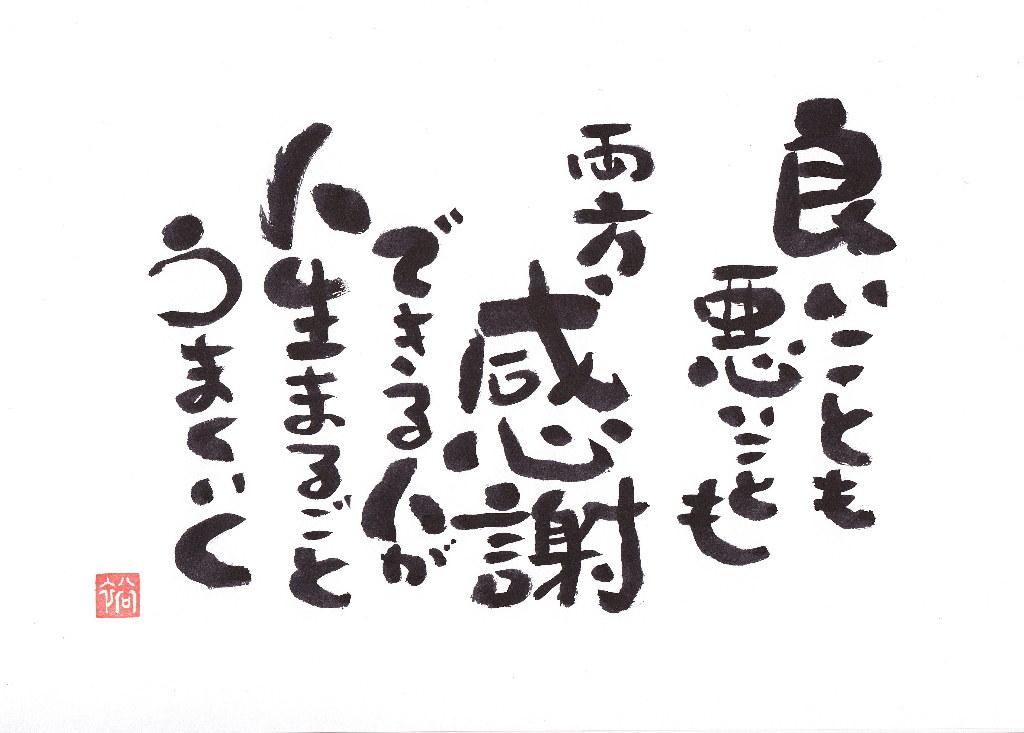 良いことも
悪いことも
両方
感謝
できる人が
人生まるごと
うまくいく
裕